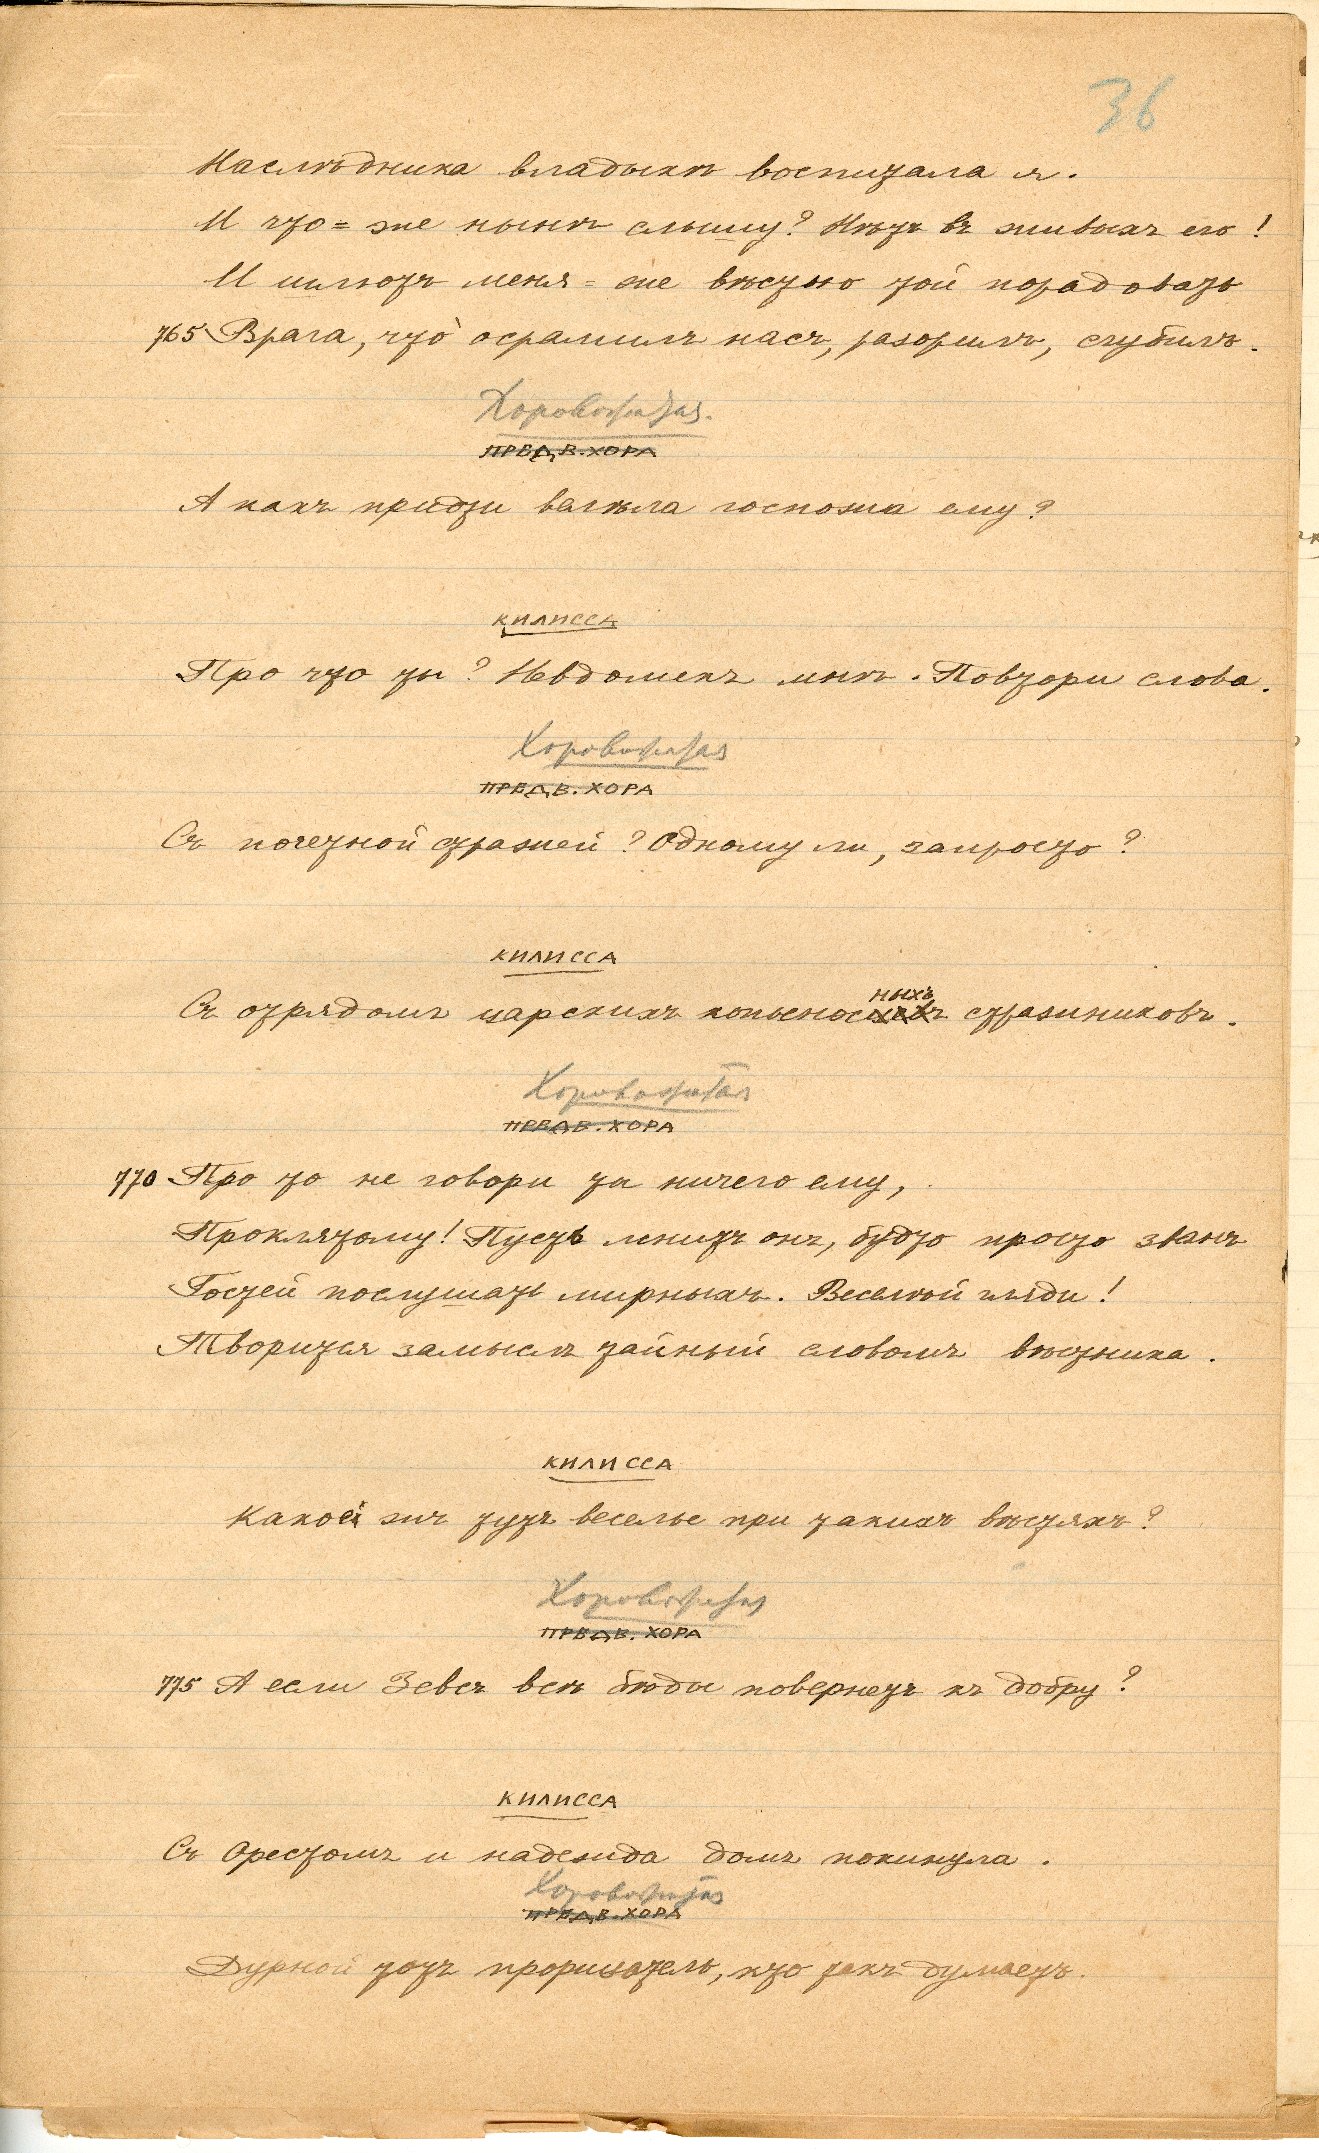 36
Наслѣдника владыкѣ воспитала я.
И что-же нынѣ слышу? Нѣтъ въ живыхъ его!
И шлютъ меня-же вѣстью той порадовать
765 Врага, что̀ осрамилъ насъ, разорилъ, сгубилъ.
Хоровожатая.
ПРЕДВ. ХОРА
А какъ придти велѣла госпожа ему?
КИЛИССА
Про что ты? Невдомекъ мнѣ. Повтори слова.
Хоровожатая
ПРЕДВ. ХОРА
Съ почетной стражей? Одному ли, запросто?
КИЛИССА
ныхъ
Съ отрядомъ царскихъ копьеносцевъ стражниковъ.
Хоровожатая
ПРЕДВ. ХОРА
770 Про то не говори ты ничего ему,
Проклятому! Пусть мнитъ онъ, будто просто званъ
Гостей послушать мирныхъ. Веселѣй гляди!
Творится замыслъ тайный словомъ вѣстника.
КИЛИССА
Какое жъ тутъ веселье при такихъ вѣстяхъ?
Хоровожатая
ПРЕДВ. ХОРА
775 А если Зевсъ всѣ бѣды повернетъ къ добру?
КИЛИССА
Съ Орестомъ и надежда домъ покинула.
Хоровожатая
ПРЕДВ. ХОРА
Дурной тотъ прорицатель, кто такъ думаетъ.